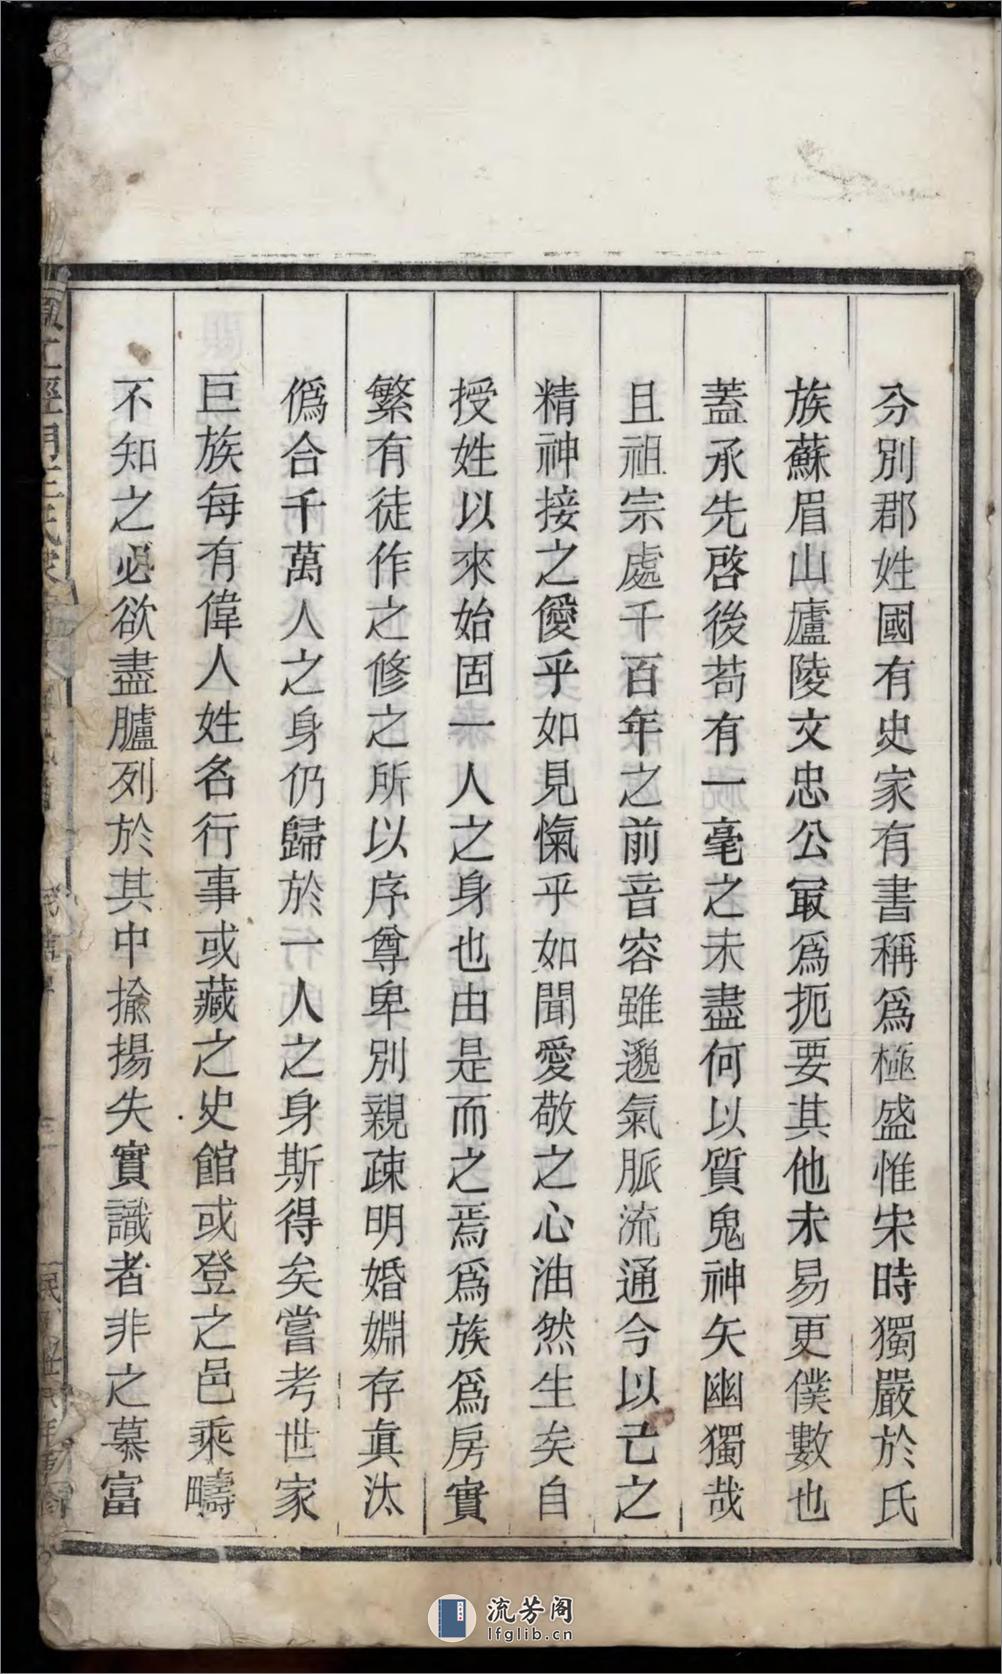 分別郡姓國有史家有書稱爲極盛惟宋時獨嚴於氏
族蘇眉山廬陵文忠公冣爲扼要其他未易更僕數也
蓋承先啓後苟有一毫之未盡何以質鬼神矢幽獨哉
且祖宗處千百年之前音容雖邈氣脈流通今以己之
精神接之僾乎如見愾乎如聞愛敬之心油然生矣自
授姓以來始固一人之身也由是而之焉爲族爲房實
繁有徒作之修之所以序尊卑別親疎明婚婣存眞汰
僞合千萬人之身仍歸於一人之身斯得矣嘗考世家
巨族每有偉人姓名行事或藏之史館或登之邑乘疇
不知之必欲盡臚列於其中揄揚失實識者非之慕富
流芳阁
lfglib.cn